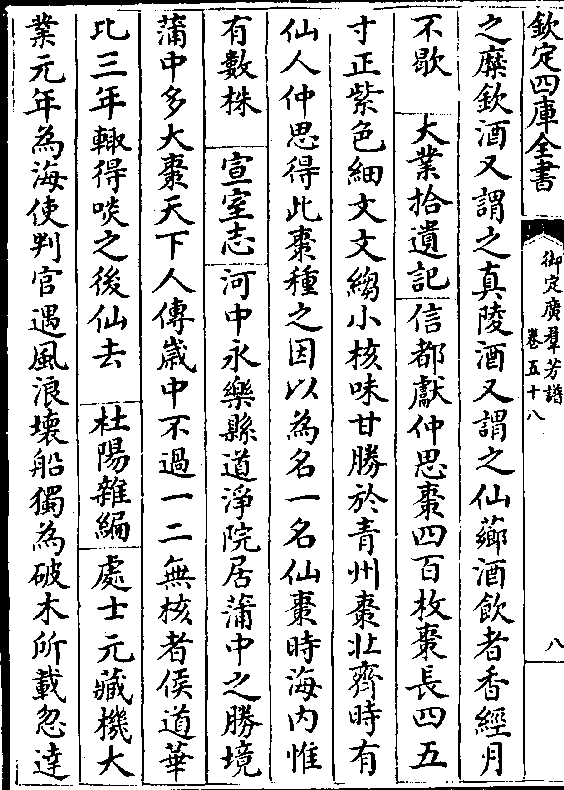 欽定四庫全書
御定廣羣芳譜
卷五十八
八
之糜欽酒又謂之真陵酒又謂之仙薌酒飲者香經月
不歇 大業拾遺記 信都獻仲思棗四百枚棗長四五
寸正紫色細文文縐小核味甘勝於青州棗北齊時有
仙人仲思得此棗種之因以為名一名仙棗時海内惟
有數株 宣室志 河中永樂縣道淨院居蒲中之勝境
蒲中多大棗天下人傳歲中不過一二無核者侯道華
比三年輙得啖之後仙去 杜陽雜編 處士元藏機大
業元年為海使判官遇風浪壞船獨為破木所載忽達